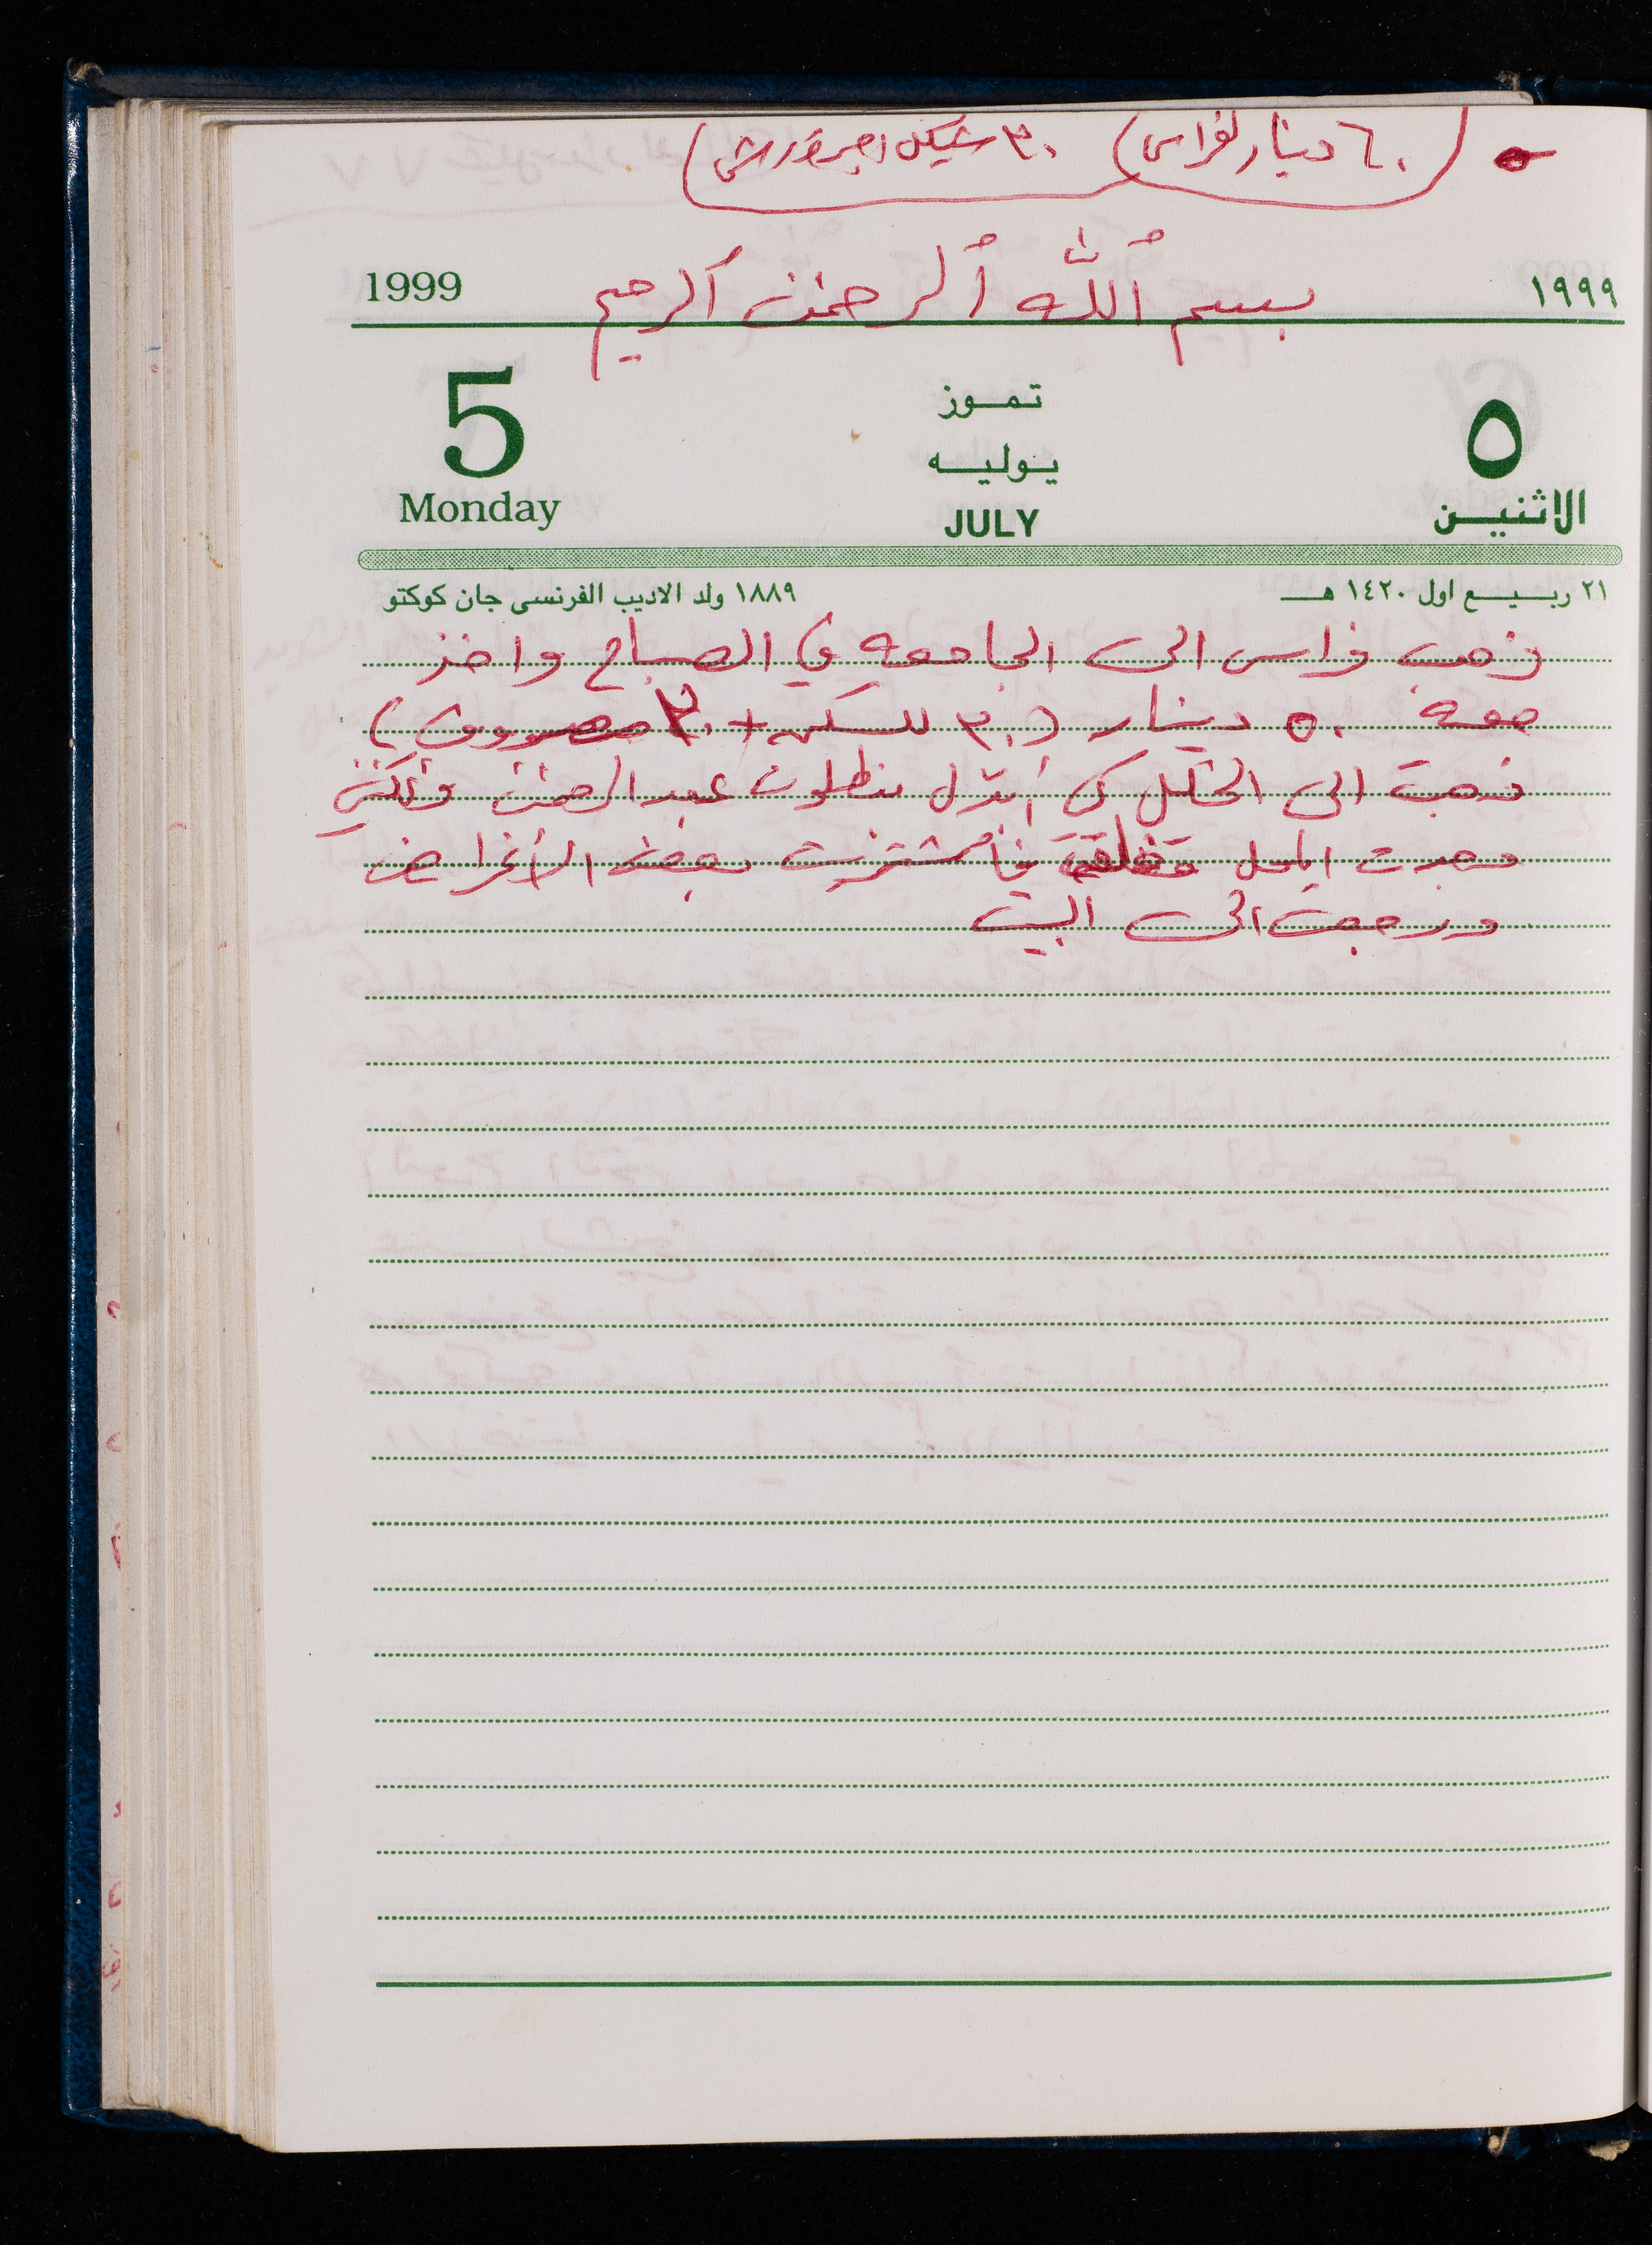 (٦٠ دينار لفراس) ٣٠ شيكل اجرة
بسم الله الرحمن الرحيم
1999 ١٩٩٩
5 تموز ٥
يوليه
Monday JULY الاثنين
٢١ ربيع اول ١٤٢٠ هـ ١٨٨٩ ولد الاديب الفرنسى جان كوكتو
ذهب فراس الى الجامعه في الصباح واخذ
معه ٥٠ دينار (٣٠ للسكن + ٢٠ مصروف)
ذهبت الى الخليل كي أبدل بنطلون عبد الرحمن ولكنني
وجدت المحل مغلق فأشتريت بعض الأغراض
ورجعت الى البيت